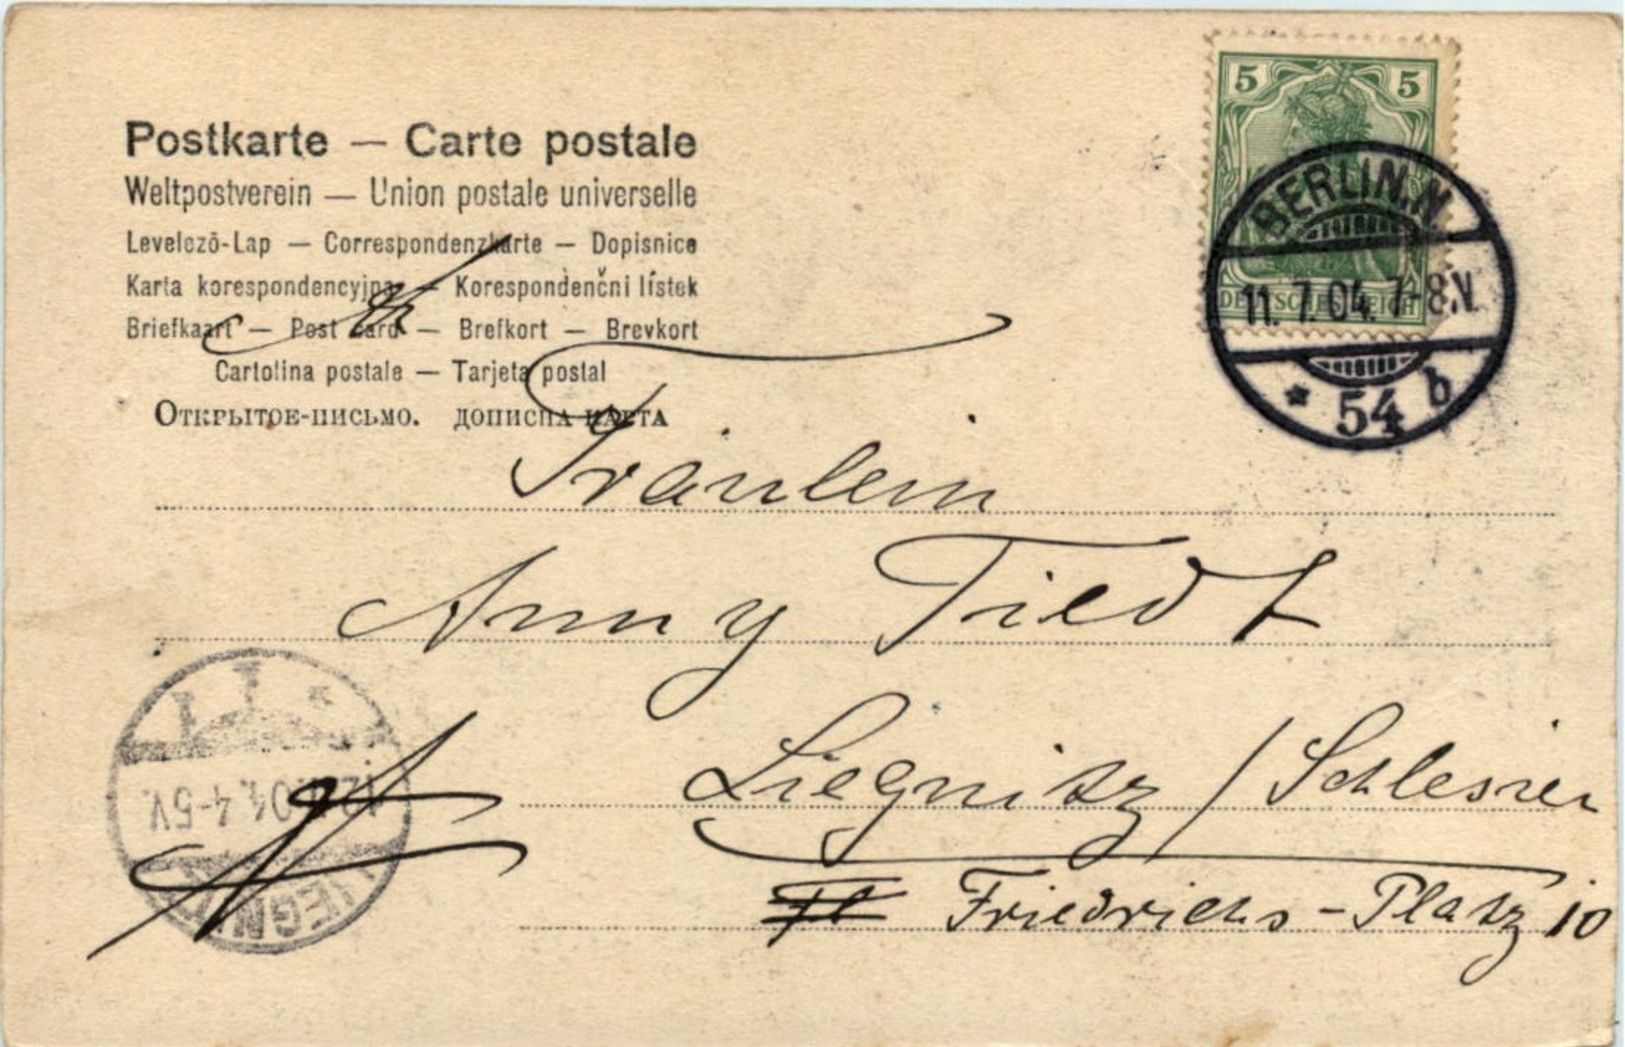 Postkarte — Carte postale
Weltpostverein — Union postale universelle
Levelező-Lap — Correspondenzkarte — Dopisnice
Karta korespondencyjna — Korespondenčni lístek
Briefkaart — Post card — Brefkort — Brevkort
Cartolina postale — Tarjeta postal
Открытое-письмо. дописна карта
5 5
DEUTSCHES REICH
BERLIN. N.
11. 7. 04. 7-8 V.
* 54 b
Fräulein
Anny Tiedt
Liegnitz / Schlesien
Friedrichs-Platz 10
LIEGNITZ
12.7.04. 4-5 V.